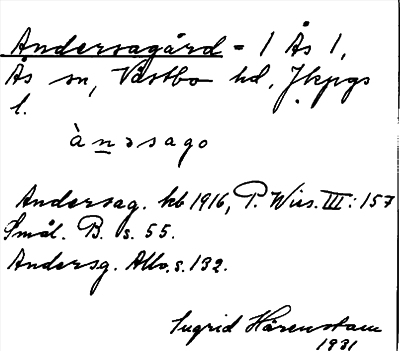 Andersagård - 1 Ås 1,
Ås sn, Västbo hd, Jkpgs
l.
ànəsago
Andersag. hb 1916, P. Wies. III: 157
Smål. B. s. 55.
Andersg. Allo, s. 132.
Ingrid Härenstam
1931